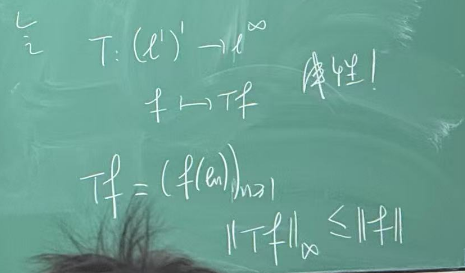 T: (ℓ¹)' → ℓ^∞
f ↦ Tf
Tf = (f(eₙ))ₙ≥₁
‖Tf‖_∞ ≤ ‖f‖